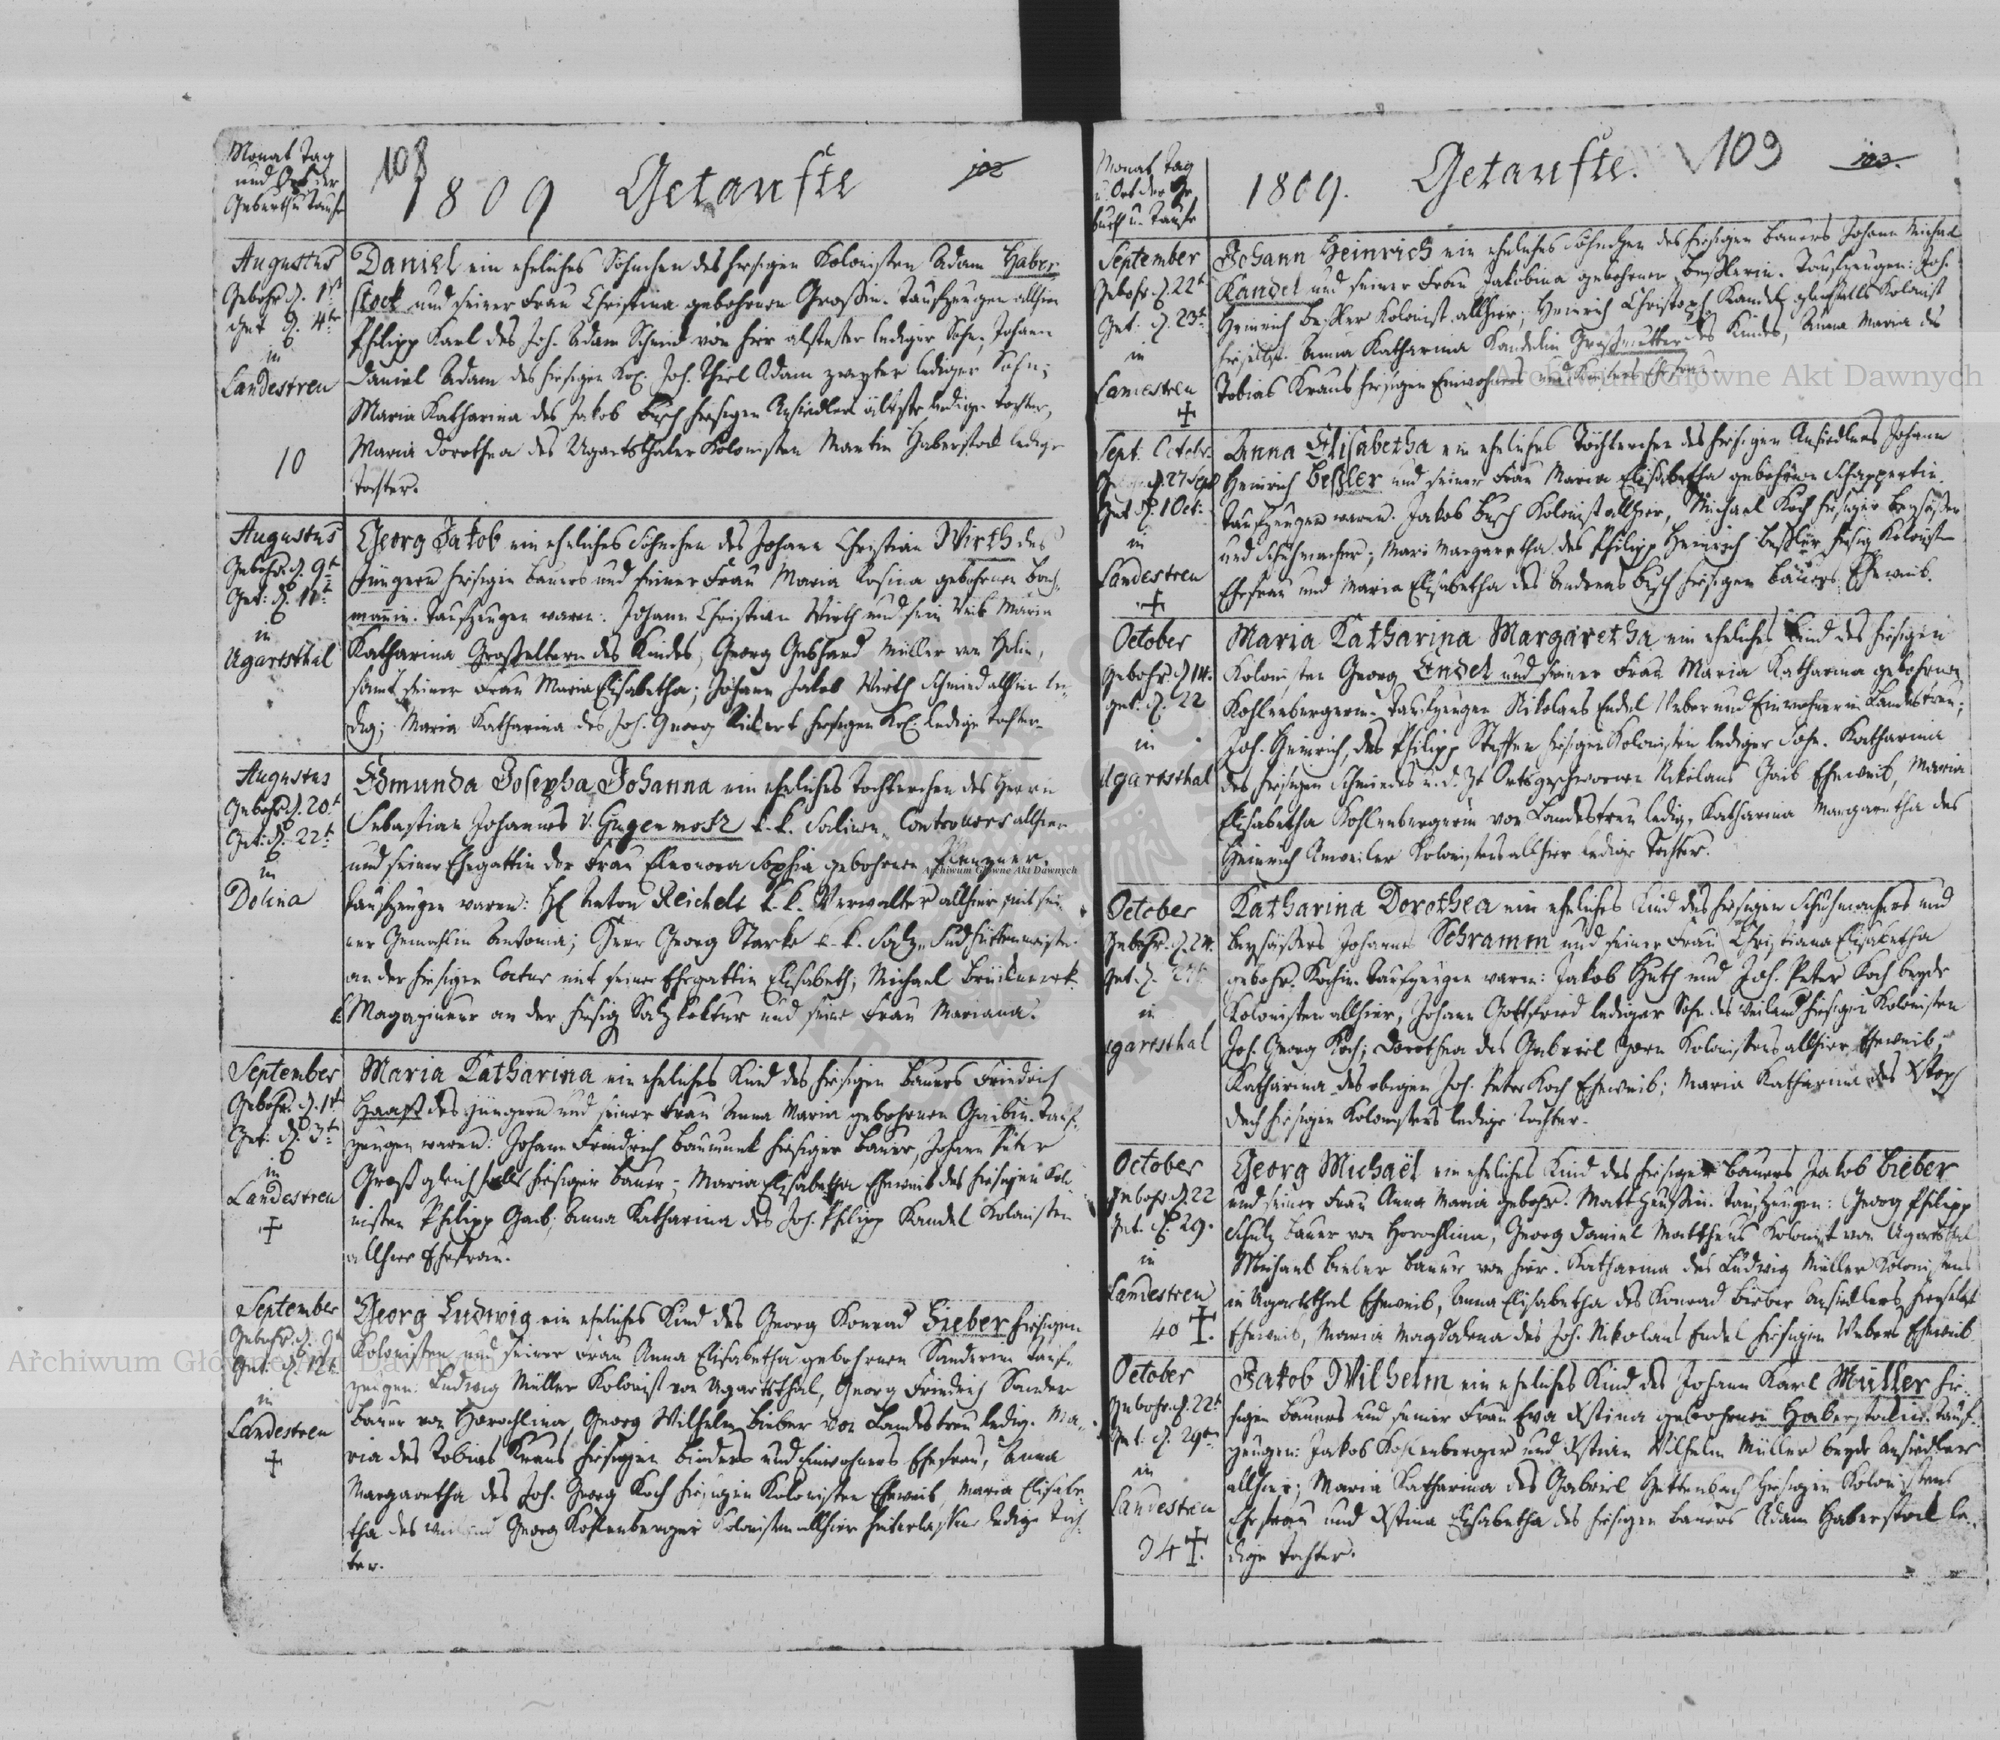 Monat Tag
und Ort der
Geburth u Taufe
108
1809 Getaufte
102
Augustus
Gebohr. d. 1st
Get. d. 4te
in
Landestreu
10
Daniel ein eheliches Söhnchen des hiesigen Kolonisten Adam Haber
stock und seiner Frau Christina gebohrnen Großin. Taufzeugen allhier
Philipp Karl des Joh. Adam Schmid von hier ältester lediger Sohn, Johann
Daniel Adam des hiesigen Kol. Joh. Thiel Adam zweyter lediger Sohn;
Maria Katharina des Jakob Busch hiesigen Ansiedlers älteste ledige Tochter,
Maria Dorothea des Ugartsthaler Kolonisten Martin Haberstock ledige
Tochter.
Augustus
Gebohr. d. 9t
Get: d. 11t
in
Ugartsthal
Georg Jakob ein eheliches Söhnchen des Johann Christian Wirth des
Jüngern hiesigen Bauers und seiner Frau Maria Rosina gebohrnen Bach-
mannin. Taufzeugen waren: Johann Christian Wirth und sein Weib Maria
Katharina Großeltern des Kindes; Georg Gebhard Müller von Holin,
samt seiner Frau Maria Elisabetha; Johann Jakob Wirth Schmied allhier le-
dig; Maria Katharina des Joh. Georg hiesigen Kol. ledige Tochter.
Augustus
Gebohr. d. 20t
Get: d. 22t
in
Dolina
Edmunda Josepha Johanna ein eheliches Töchterchen des Herrn
Sebastian Johannes v. Gugenmosz k. k. Salinen Controllors allhier
und seiner Ehegattin der Frau Eleonora Sophia gebohrnen
Archiwum Główne Akt Dawnych
Taufzeugen waren: H. Anton Reichelt k. k. Verwalter allhier mit sei
ner Gemahlin Antonia; Herr Georg Starke k. k. Salz Sudhüttenmeister
an der hiesigen Coctur mit seiner Ehegattin Elisabeth; Michael
Magazineur an der hiesig Salzkoktur und seine Frau Mariana.
September
Gebohr. d. 1t
Get: d. 3t
in
Landestreu
Maria Katharina ein eheliches Kind des hiesigen Bauers Friedrich
Haaß des Jüngern und seiner Frau Anna Maria gebohrnen Gaibin. Tauf-
zeugen waren: Johann Friedrich Baumunk hiesiger Bauer, Johann Peter
Groß gleichfalls hiesiger Bauer; Maria Elisabetha Eheweib des hiesigen Kolo
nisten Philipp Gaib; Anna Katharina des Joh. Philipp Kandel Kolonisten
allhier Ehefrau.
September
Gebohr. d. 9t
Get: d. 12t
in
Landestreu
Georg Ludwig ein eheliches Kind des Georg Konrad Bieber hiesigen
Kolonisten und seiner Frau Anna Elisabetha gebohrnen Sanderin Tauf-
zeugen: Ludwig Müller Kolonist von Ugartsthal, Georg Friedrich Sander
Bauer von Horochlina, Georg Wilhelm Bieber von Landestreu ledig. Ma-
ria des Tobias Kraus hiesigen Binders und Einwohners Ehefrau, Anna
Margaretha des Joh. Georg Koch hiesigen Kolonisten Eheweib, Maria Elisabe-
tha des weiland Georg Kohlenberger Kolonisten allhier hinterlassene ledige Toch-
ter.
Monat Tag
u. Ort der Ge
burth u. Taufe
1809. Getaufte.
109
103.
September
Gebohr. d. 22t
Get: d. 23t
in
Landestreu
Johann Heinrich ein eheliches Söhnchen des hiesigen Bauers Johann Michael
Kandel und seiner Frau Jakobina gebohrnen Beßlerin. Taufzeugen: Joh.
Heinrich Beßler Kolonist allhier; Heinrich Christoph Kandel gleichfalls Kolonist
hieselbst. Anna Katharina Kandelin Großmutter des Kindes, Anna Maria des
Tobias Kraus hiesigen Einwohners und Binders Ehefrau.
Archiwum Główne Akt Dawnych
Sept. Octobr.
d. 27 Sept
Get d. 1 Oct:
in
Landestreu
Anna Elisabetha ein eheliches Töchterchen des hiesigen Ansiedlers Johann
Heinrich Beßler und seiner Frau Maria Elisabetha gebohrnen Schappertin.
Taufzeugen waren. Jakob Busch Kolonist allhier, Michael Koch hiesiger Beysäßer
und Schuhmacher; Mari Margaretha des Philipp Heinrich Beßler hiesig Kolonist
Ehefrau und Maria Elisabetha des Andreas Busch hiesigen Bauers Eheweib.
October
Gebohr. d 14.
get. d. 22
in
Ugartsthal
Maria Katharina Margaretha ein eheliches Kind des hiesigen
Kolonisten Georg Endel und seiner Frau Maria Katharina gebohrnen
Kohlenbergerin. Taufzeugen Nikolaus Endel Weber und Einwohner in Landestreu;
Joh. Heinrich, des Philipp Steffen hiesigen Kolonisten lediger Sohn. Katharina
des hiesigen Schmiedes u. d. Zt Ortsgeschwornen Nikolaus Gaib Eheweib, Maria
Elisabetha Kohlenbergerin von Landestreu ledig, Katharina Margaretha des
Heinrich Anweiler Kolonistens allhier ledige Tochter.
October
Gebohr. d. 24.
Get d.
in
Ugartsthal
Katharina Dorothea ein eheliches Kind des hiesigen Schuhmachers und
Beysäßers Johannes Schramm und seiner Frau Christiana Elisabetha
gebohr. Kochin. Taufzeugen waren: Jakob Huth und Joh. Peter Koch beyde
Kolonisten allhier, Johann Gottfried lediger Sohn des weiland hiesigen Kolonisten
Joh. Georg Koch; Dorothea des Gabriel Kolonistens allhier Eheweib;
Katharina des obigen Joh. Peter Koch Eheweib; Maria Katharina des Xstoph
Dech hiesigen Kolonistens ledige Tochter.
October
Gebohr d. 22
Get. d. 29.
in
Landestreu
40
Georg Michaël ein eheliches Kind des hiesigen Bauers Jakob Bieber
und seiner Frau Anna Maria gebohr. Mattheußin. Taufzeugen: Georg Philipp
Schulz Bauer von Horochlina, Georg Daniel Mattheus Kolonist von Ugartsthal
Michael Bieber Bauer von hier. Katharina des Ludwig Müller Kolonistens
in Ugartsthal Eheweib, Anna Elisabetha des Konrad Bieber Ansiedlers hieselbst
Eheweib, Maria Magdalena des Joh. Nikolaus Endel hiesigen Webers Eheweib.
October
Gebohr. d. 22t
Get. d. 29ten
in
Landestreu
34
Jakob Wilhelm ein eheliches Kind des Johann Karl Müller hie-
sigen Bauers und seiner Frau Eva Xstina gebohrnen Haberstockin. Tauf-
zeugen: Jakob Kohlenberger und Xstian Wilhelm Müller beyde Ansiedler
allhier; Maria Katharina des Gabriel Hettenbach hiesigen Kolonistens
Ehefrau und Xstina Elisabetha des hiesigen Bauers Adam Haberstock le-
dige Tochter.
Archiwum Główne Akt Dawnych